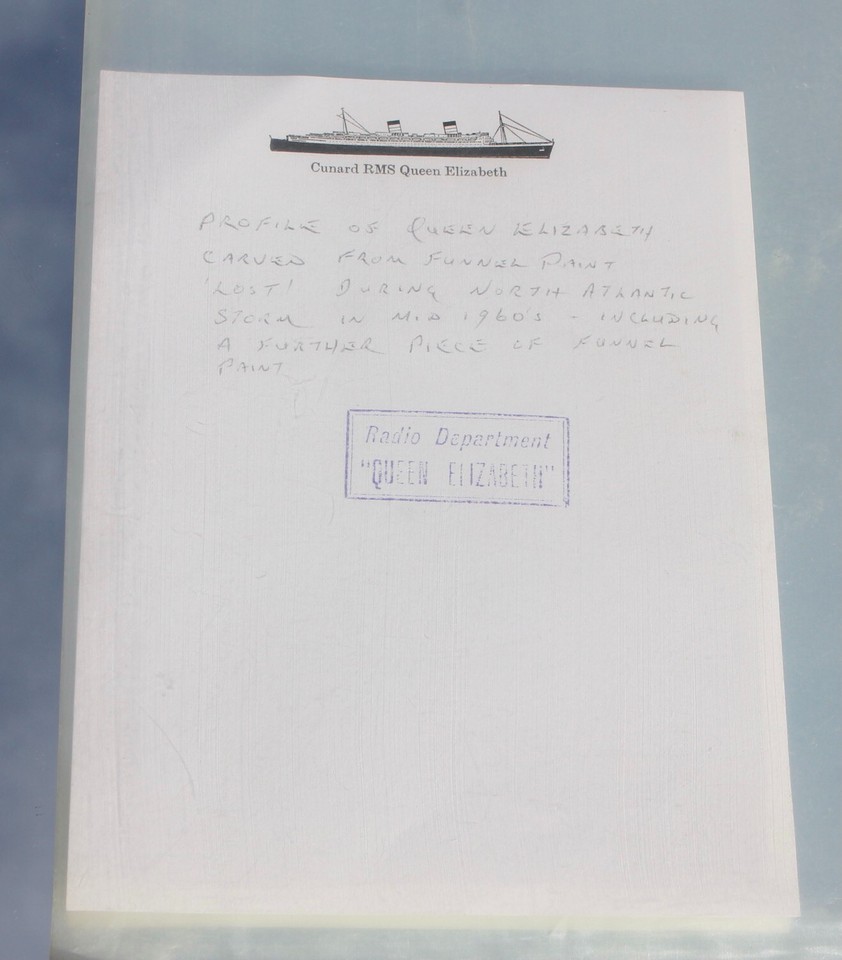 Cunard RMS Queen Elizabeth
PROFILE OF QUEEN ELIZABETH
CARVED FROM FUNNEL PAINT
'LOST' DURING NORTH ATLANTIC
STORM IN MID 1960'S - INCLUDING
A FURTHER PIECE OF FUNNEL
PAINT
Radio Department
"QUEEN ELIZABETH"